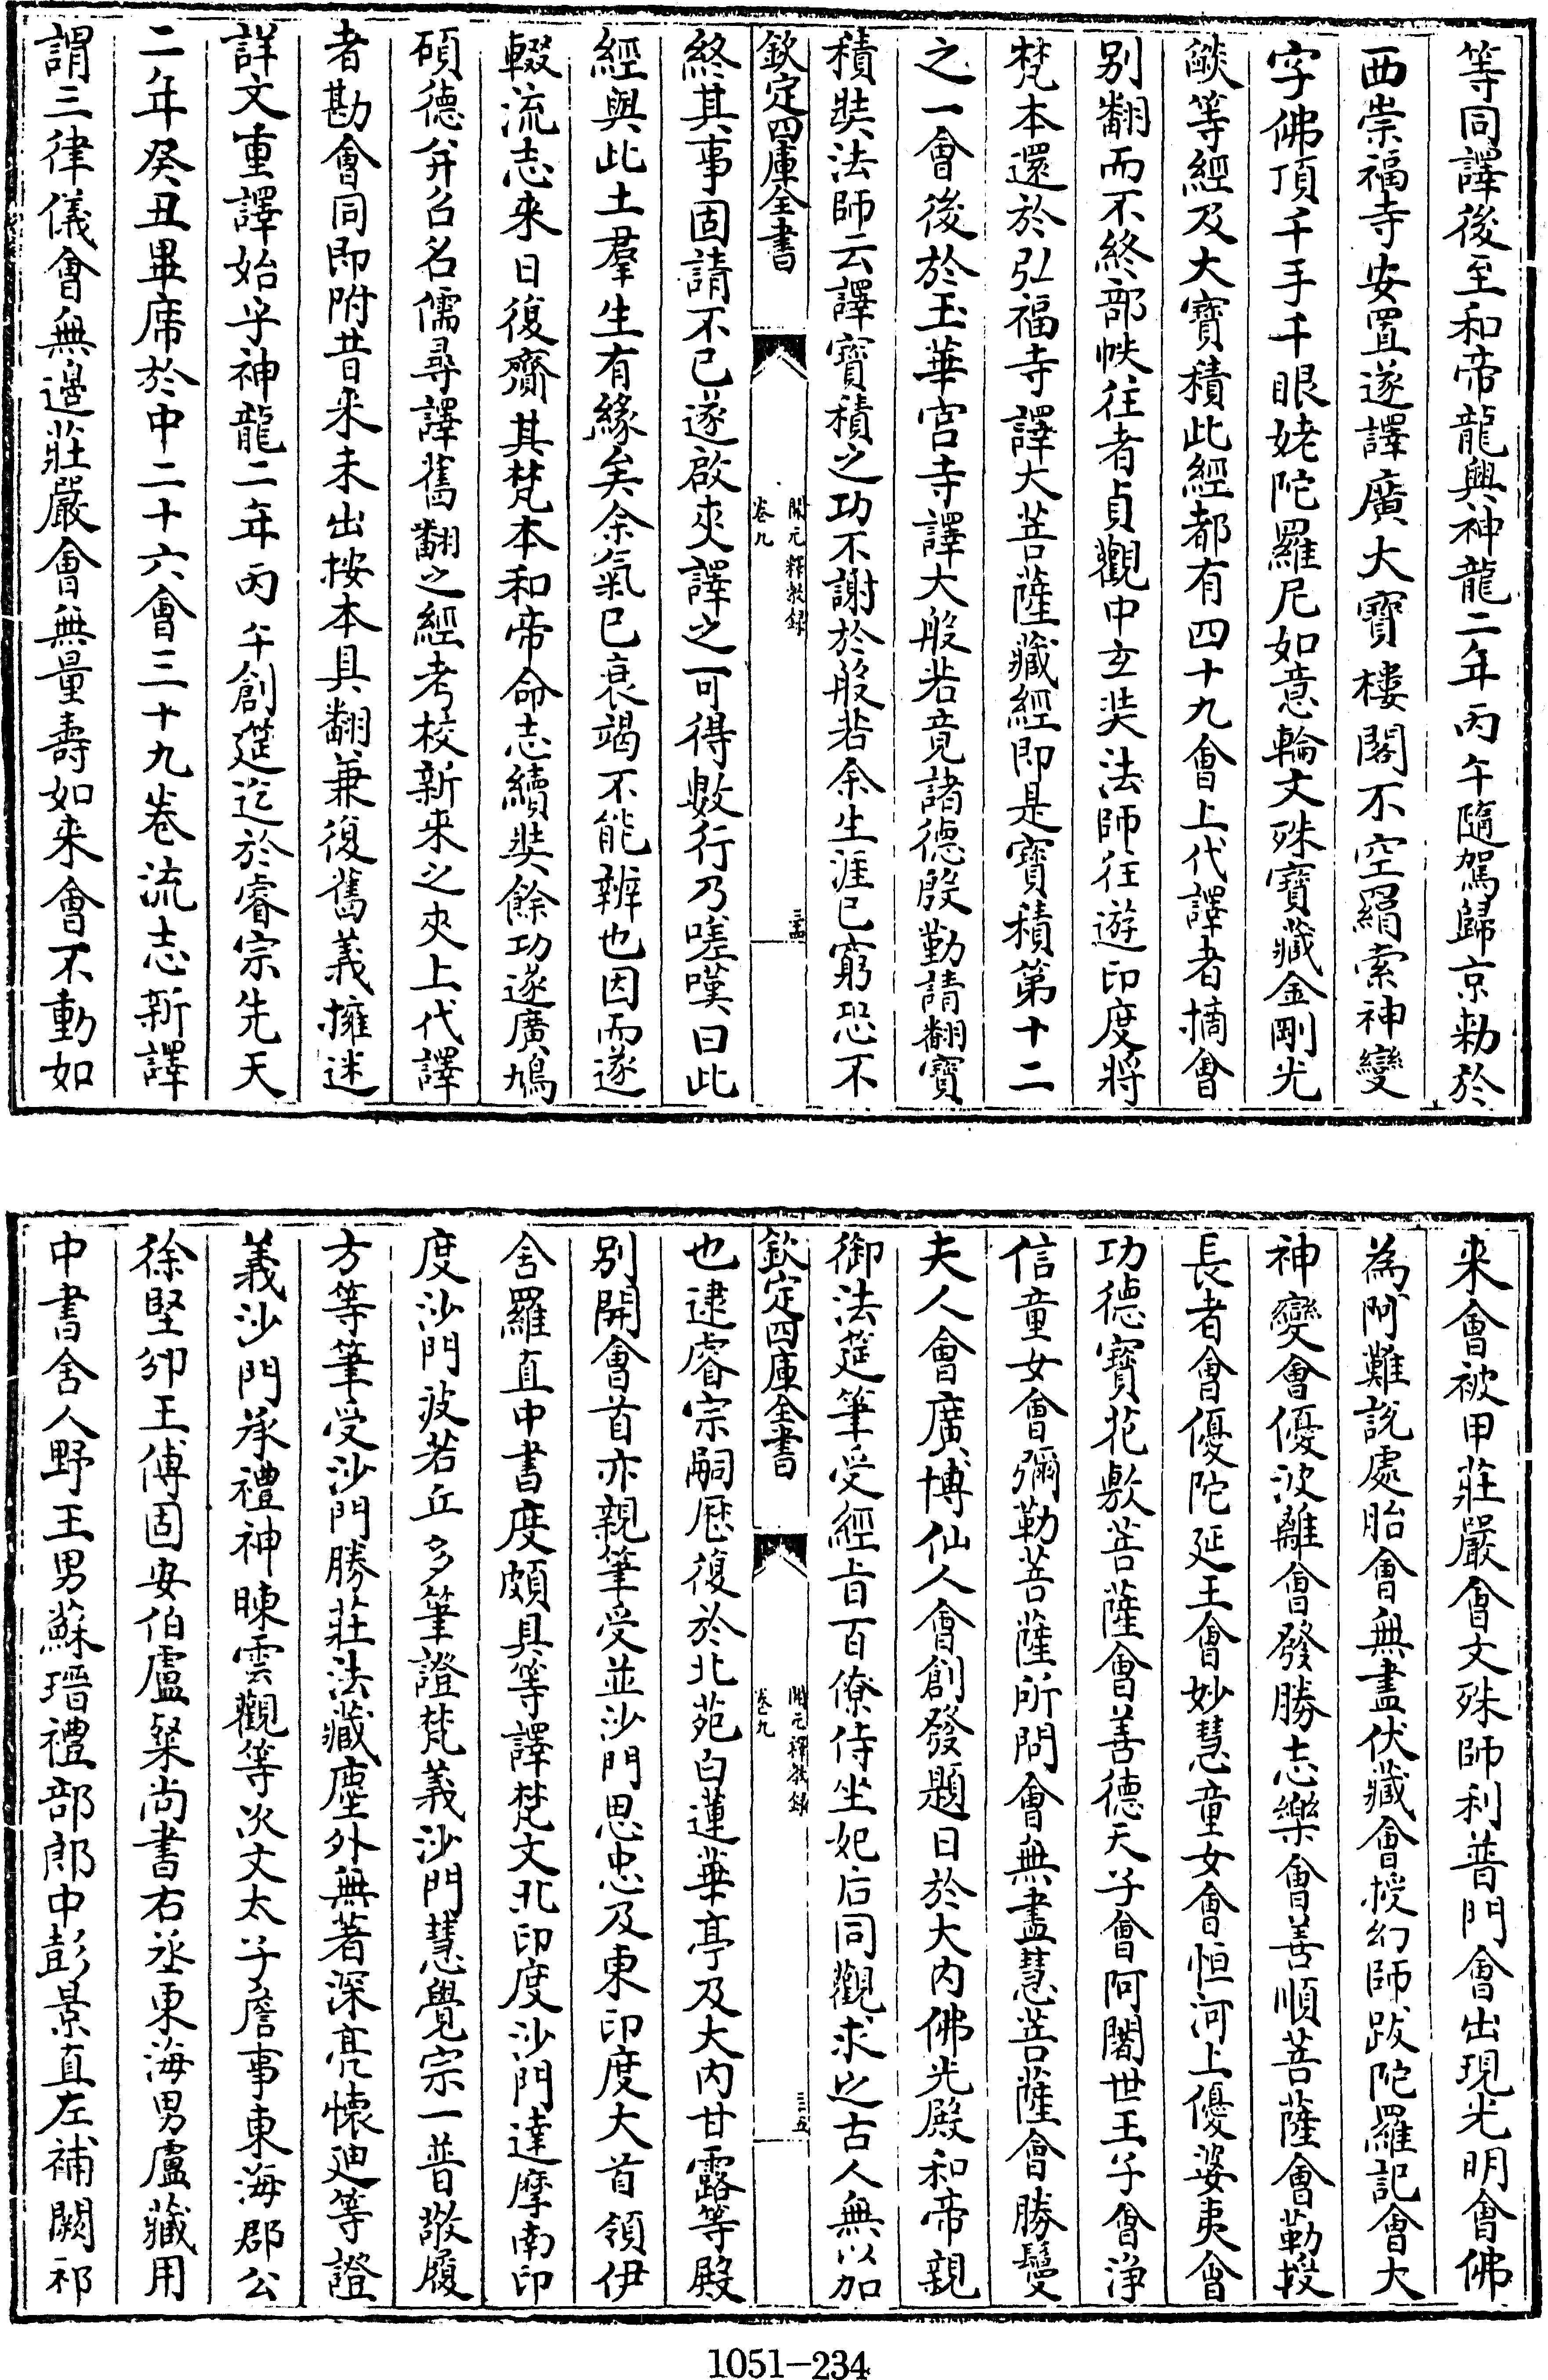 等同譯後至和帝龍興神龍二年丙午隨駕歸京勅於
西崇福寺安置遂譯廣大寶樓閣不空羂索神變
字佛頂千手千眼姥陀羅尼如意輪文殊寶藏金剛光
燄等經及大寶積此經都有四十九會上代譯者摘會
别翻而不終部帙往者貞觀中玄奘法師往遊印度將
梵本還於弘福寺譯大菩薩藏經即是寶積第十二
之一會後於玉華宫寺譯大般若竟諸德殷勤請翻寶
積奘法師云譯寶積之功不謝於般若余生涯已窮恐不
欽定四庫全書
開元釋教録
卷九
三五
終其事固請不已遂啟夾譯之可得數行乃嗟嘆曰此
經與此土羣生有緣矣余氣已衰竭不能辦也因而遂
輟流志來日復齎其梵本和帝命志續奘餘功遂廣鳩
碩德并召名儒尋譯舊翻之經考校新來之夾上代譯
者勘會同即附昔来未出按本具翻兼復舊義擁迷
詳文重譯始乎神龍二年丙午創筵迄於睿宗先天
二年癸丑畢席於中二十六會三十九巻流志新譯
謂三律儀會無邊莊嚴會無量壽如来會不動如
来會被甲莊嚴會文殊師利普門會出現光明會佛
為阿難說處胎會無盡伏藏會授幻師跋陀羅記會大
神變會優波離會發勝志樂會善順菩薩會勤授
長者會優陀延王會妙慧童女會恒河上優婆夷會
功德寶花敷菩薩會善德天子會阿闍世王子會淨
信童女會彌勒菩薩所問會無盡慧菩薩會勝鬘
夫人會廣博仙人會創發題日於大内佛光殿和帝親
御法筵筆受經旨百僚侍坐妃后同觀求之古人無以加
欽定四庫全書
開元釋教録
卷九
三五
也逮睿宗嗣歴復於北苑白蓮華亭及大内甘露等殿
别開會首亦親筆受並沙門思忠及東印度大首領伊
舍羅直中書度頗具等譯梵文北印度沙門達摩南印
度沙門波若丘多等證梵義沙門慧覺宗一普敬履
方等筆受沙門勝莊法藏塵外無著深亮懷廸等證
義沙門承禮神暕雲觀等次文太子詹事東海郡公
徐堅邠王傅固安伯盧粲尚書右丞東海男盧藏用
中書舍人野王男蘇瑨禮部郎中彭景直左補闕祁
1051-234